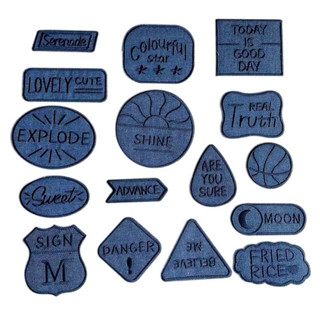 Serenade
Colourful
star
TODAY
IS
GOOD
DAY
LOVELY CUTE
EXPLODE
SHINE
REAL
Truth
ARE
YOU
SURE
Sweet
ADVANCE
MOON
SIGN
M
DANGER
!
BELIEVE
ME
FRIED
RICE